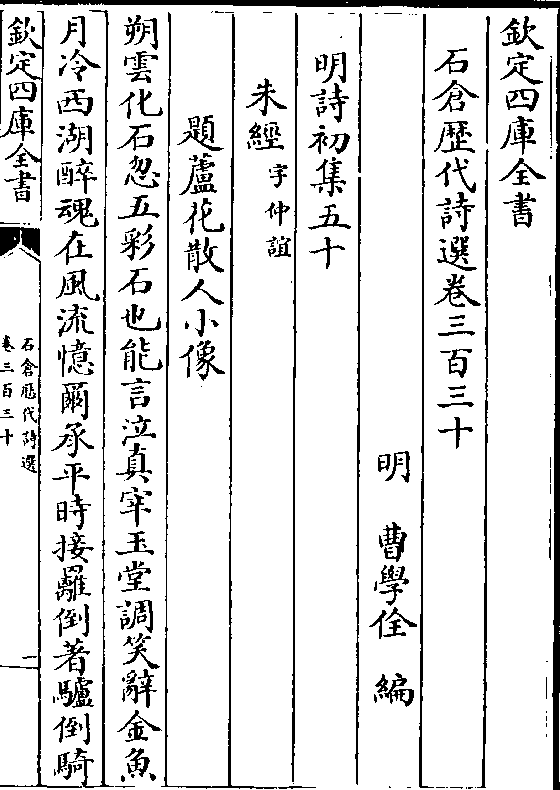 欽定四庫全書
石倉歴代詩選卷三百三十
明 曹學佺 編
明詩初集五十
朱經字仲誼
題蘆花散人小像
朔雲化石忽五彩石也能言泣真宰玉堂調笑辭金魚
月冷西湖醉魂在風流憶爾承平時接䍦倒著驢倒騎
欽定四庫全書
石倉歴代詩選
卷三百三十
一